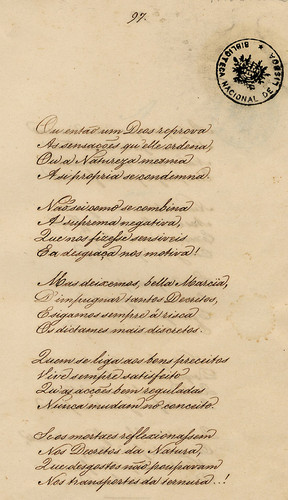 97.
BIBLIOTECA NACIONAL DE LISBOA
Ou então um Deos reprova
As sensações qu'elle ordena,
Ou a Natureza mesma
A si propria se condemna.
Não sei como se combina
A suprema negativa,
Que nos fizesse sensiveis
E a desgraça nos motiva!
Mas deixemos, bella Marcia,
D'impugnar tantos Decretos,
Sigamos sempre à risca
Os dictames mais discretos.
Quem se liga aos bens preceitos
Vive sempre satisfeito
Qu'as acções bem reguladas
Nunca mudam no conceito.
Se os mortaes reflexionassem
Nos Decretos da Natura,
Que desgostos não poupavam
Nos transportes da ternura..!